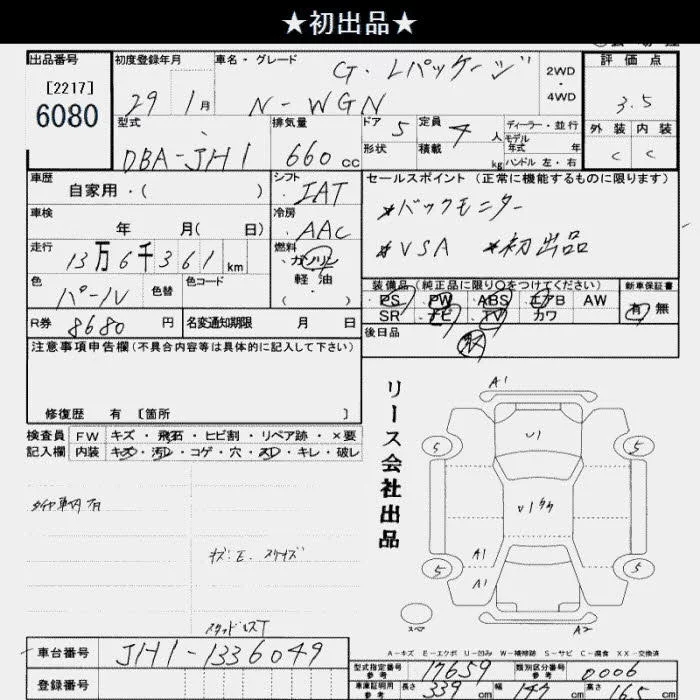 ★初出品★
出品番号 初度登録年月 車名・グレード 評価点
[2217] G・Lパッケージ 2WD・4WD
6080 29 1月 N-WGN 3.5
型式 排気量 ドア 5 定員 4 人 ディーラー・並行 外装 内装
モデル年式 年
DBA-JH1 660cc 形状 積載 kg ハンドル 左・右 C C
車歴 シフト セールスポイント (正常に機能するものに限ります)
自家用・( ) IAT
*バックモニター
車検 冷房
年 月( 日) AAC
*VSA *初出品
走行 燃料
13万6千361km ガソリン
軽油
・( )
色 色替 色コード 装備品(純正品に限り○をつけてください) 新車保証書
パール PS PW ABS エアB AW 有 無
SR ナビ TV カワ
R券 8680円 名変通知期限 月 日 後日品
取
注意事項申告欄(不具合内容等は具体的に記入して下さい)
修復歴 有 [箇所 ]
リース会社出品
検査員 FW キズ・飛石・ヒビ割・リペア跡・×要
記入欄 内装 キズ・汚レ・コゲ・穴・スレ・キレ・破レ
A1
U1
5 5
タイヤ車内有
キズ・E・スリキズ
A1
5 A1 5
スペア
A2
A-キズ E-エクボ U-凹み W-補修跡 S-サビ C-腐食 XX-交換済
車台番号 JH1-1336049
型式指定番号 参考 17659 類別区分番号 参考 0006
登録番号
車庫証明用 参考 長さ 339cm 幅 147cm 高さ 165cm